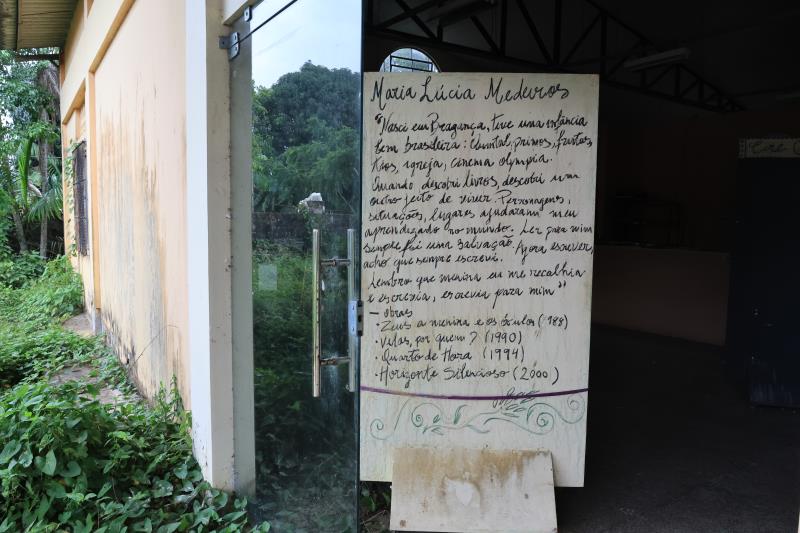 Maria Lúcia Medeiros
"Nasci em Bragança, tive uma infância
bem brasileira: quintal, primos, frutas,
rios, igreja, cinema olympia.
Quando descobri livros, descobri um
outro jeito de viver. Personagens,
situações, lugares ajudaram meu
aprendizado no mundo. Ler para mim
sempre foi uma salvação. Agora escrever,
acho que sempre escrevi.
Lembro que menina eu me recolhia
e escrevia, escrevia para mim"
- obras
• Zeus a menina e os óculos (1988)
• Velas, por quem? (1990)
• Quarto de Hora (1994)
• Horizonte Silencioso (2000)